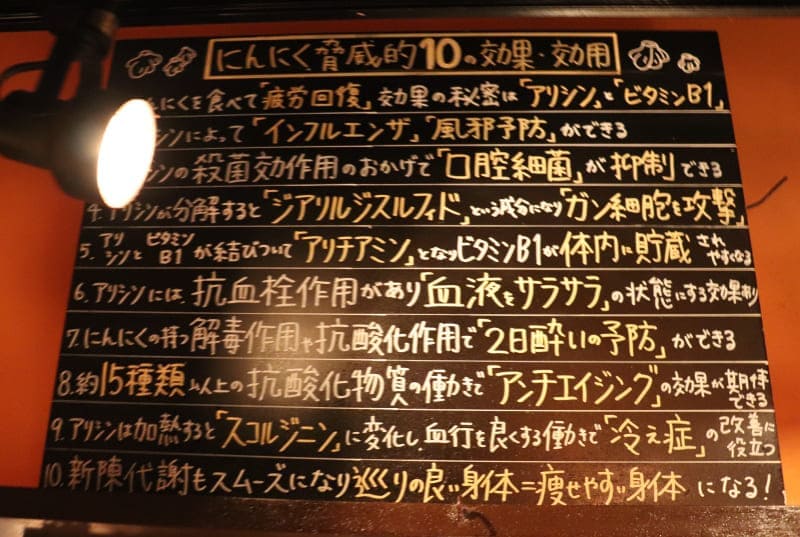 にんにく脅威的10の効果・効用
んにくを食べて「疲労回復」効果の秘密は「アリシン」と「ビタミンB1」
シンによって「インフルエンザ」「風邪予防」ができる
シンの殺菌効作用のおかげで「口腔細菌」が抑制できる
4.アリシンが分解すると「ジアリルジスルフィド」という成分になり「ガン細胞を攻撃」
5.アリシンとビタミンB1が結びついて「アリチアミン」となりビタミンB1が体内に貯蔵されやすくなる
6.アリシンには、抗血栓作用があり「血液をサラサラ」の状態にする効果あり
7.にんにくの持つ解毒作用や抗酸化作用で「2日酔いの予防」ができる
8.約15種類以上の抗酸化物質の働きで「アンチエイジング」の効果が期待できる
9.アリシンは加熱すると「スコルジニン」に変化し、血行を良くする働きで「冷え症」の改善に役立つ
10.新陳代謝もスムーズになり巡りの良い身体=痩せやすい身体になる!